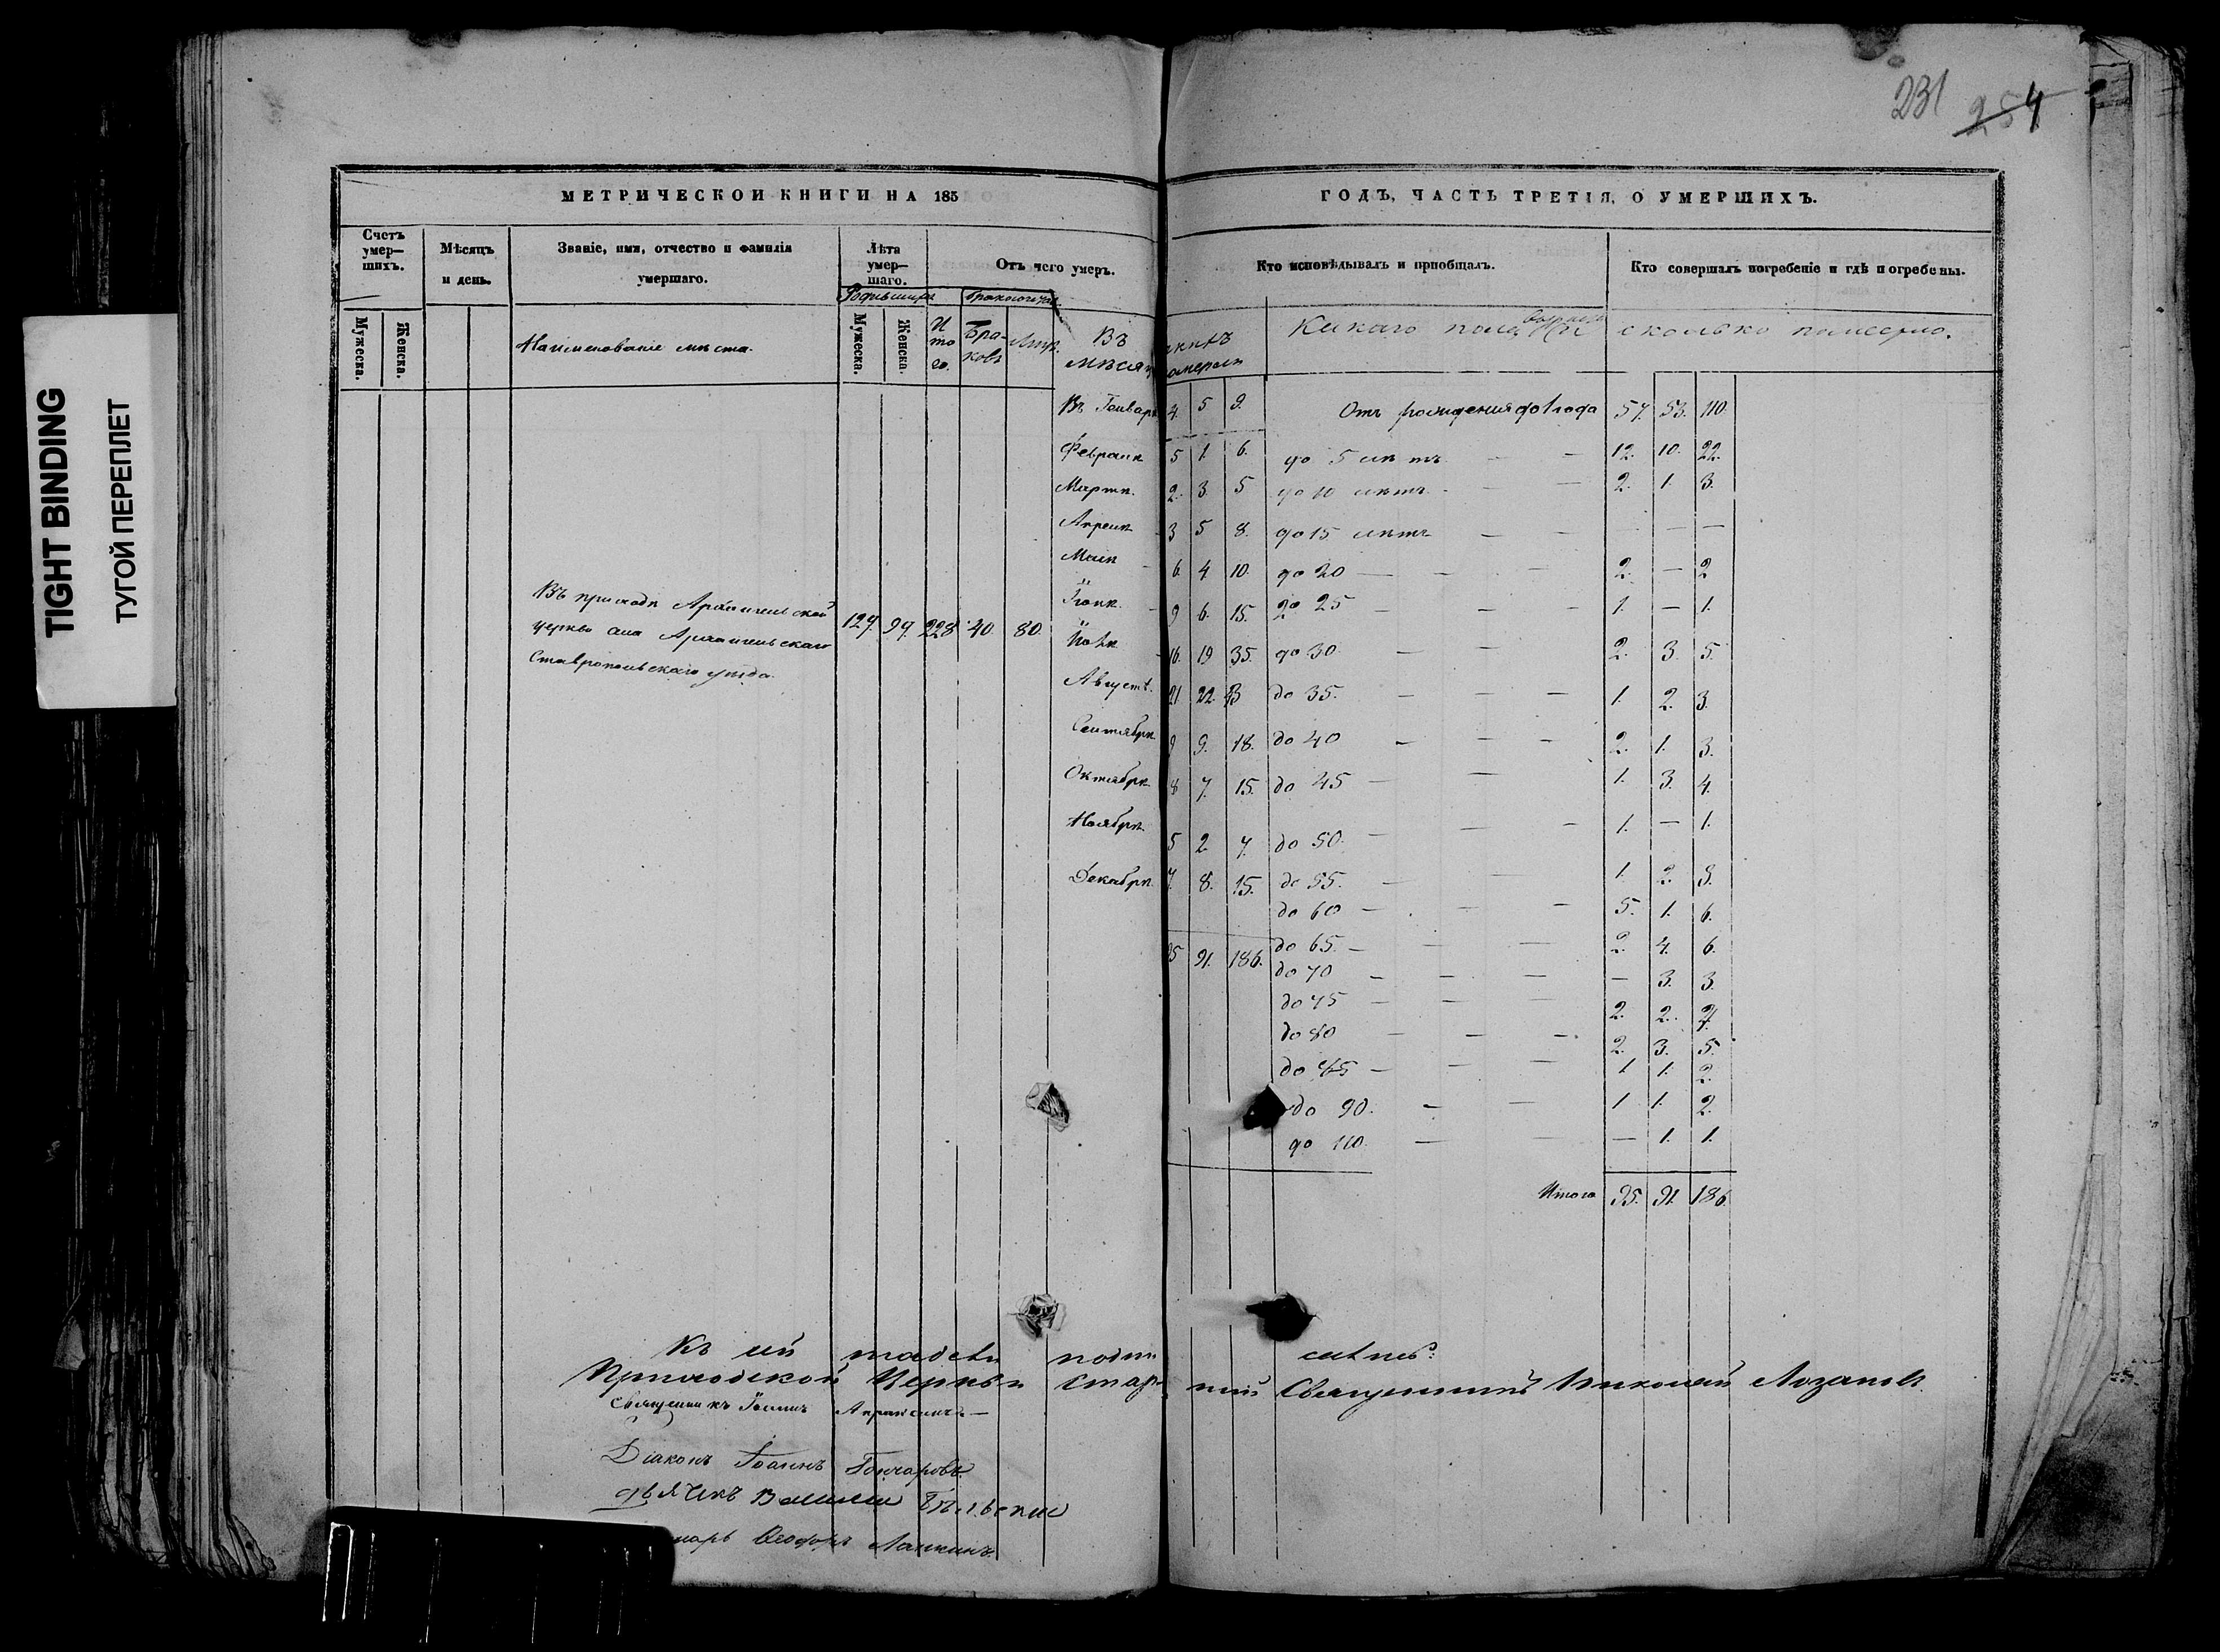 231 254
TIGHT BINDING
ТУГОЙ ПЕРЕПЛЕТ
МЕТРИЧЕСКОЙ КНИГИ НА 185
ГОДЪ, ЧАСТЬ ТРЕТІЯ, О УМЕРШИХЪ.
Счетъ умер-шихъ.
Мѣсяцъ и день.
Званіе, имя, отчество и фамилія умершаго.
Лѣта умер-шаго.
Отъ чего умеръ.
Кто исповѣдывалъ и пріобщалъ.
Кто совершалъ погребеніе и гдѣ погребены.
Мужеска. Женска.
Наименованіе мѣста.
Мужеска. Женска. Итого. Браковъ
Въ
Какого пола сколько
Въ Генварѣ 4. 5 9. Отъ рожденія до 1 года 57. 53. 110.
Февралѣ 5 1. 6. до 5 лѣтъ — — 12. 10. 22.
Мартѣ. 2. 3. 5 до 10 лѣтъ — — 2. 1. 3.
Апрелѣ 3 5 8. до 15 лѣтъ — — — — —
Маіѣ 6. 4 10. до 20 — — — 2. — 2
Іюнѣ. 9 6. 15. до 25 — — — 1. — 1.
Въ приходѣ Архангельской
церкви села Архангельскаго
Ставропольскаго уѣзда.
127. 97. 228 40. 80.
Іюлѣ 16. 19 35. до 30. — — 2. 3. 5.
Августѣ. 21 22. до 35. — — — 1. 2. 3.
Сентябрѣ 9 9. 18. до 40 — — — 2. 1. 3.
Октябрѣ 8 7. 15. до 45 — — 1. 3. 4.
Ноябрѣ 5 2 7. до 50. — — — 1. — 1.
Декабрѣ 7. 8. 15. до 55. — — 1. 2. 3.
до 60 — — — 5. 1. 6.
95 91. 186. до 65. — — — 2. 4. 6.
до 70 — — — — 3. 3.
до 75 — — — 2. 2.
до 80 — — — 2. 3. 5.
до 85 — — — 1 1. 2.
до 90. — — 1 1. 2.
до 110. — — — 1. 1.
Итого 95. 91. 186.
Къ сей
Приходской Церкви Старшій Священникъ Николай Лозановъ.
Священникъ Іоаннъ
Діаконъ Іоаннъ Гончаровъ.
дьячекъ Василій Бѣльскій
Ѳеодоръ